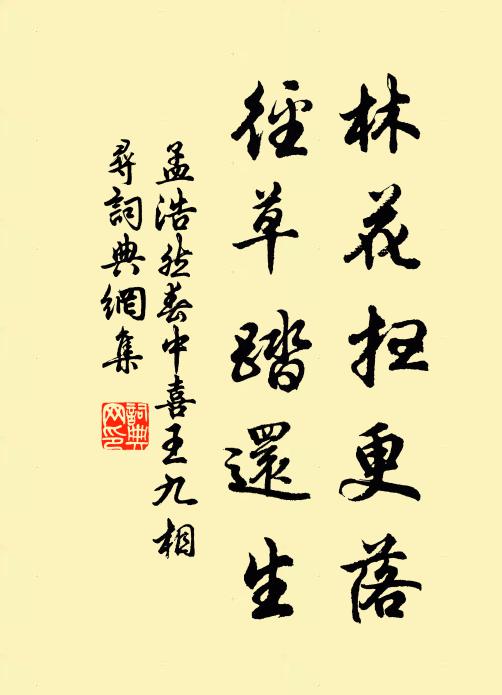 林花扫更落
径草踏還生
孟浩然春中喜王九相
尋詞典網集
詞典
网印